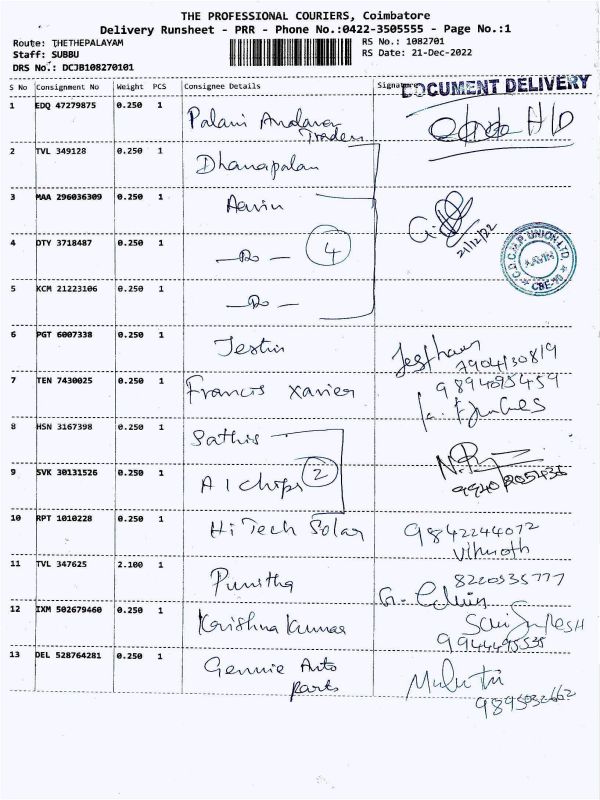 THE PROFESSIONAL COURIERS, Coimbatore
Delivery Runsheet - PRR - Phone No.:0422-3505555 - Page No.:1
Route: THETHEPALAYAM RS No.: 1082701
Staff: SUBBU RS Date: 21-Dec-2022
DRS No.: DCJB108270101
S No Consignment No Weight PCS Consignee Details Signature
DOCUMENT DELIVERY
1 EDQ 47279875 0.250 1 Palani Andavar
Traders
2 TVL 349128 0.250 1 Dhanapalan
3 MAA 296036309 0.250 1 Aavin
21/12/22
4 DTY 3718487 0.250 1 — Do — 4
C.D.C.M.P. UNION LTD.
AAVIN
CBE-10
5 KCM 21223106 0.250 1 — Do —
6 PGT 6007338 0.250 1 Jestin
7904130819
7 TEN 7430025 0.250 1 Francis Xavier 9894095459
8 HSN 3167398 0.250 1 Sathis
9 SVK 30131526 0.250 1 A1 chips 2
10 RPT 1010228 0.250 1 Hi Tech Solar 9842244072
11 TVL 347625 2.100 1 Punitha 8220535777
12 IXM 502679460 0.250 1 Krishna Kumar
9944495535
13 DEL 528764281 0.250 1 Gennie Auto
Parts